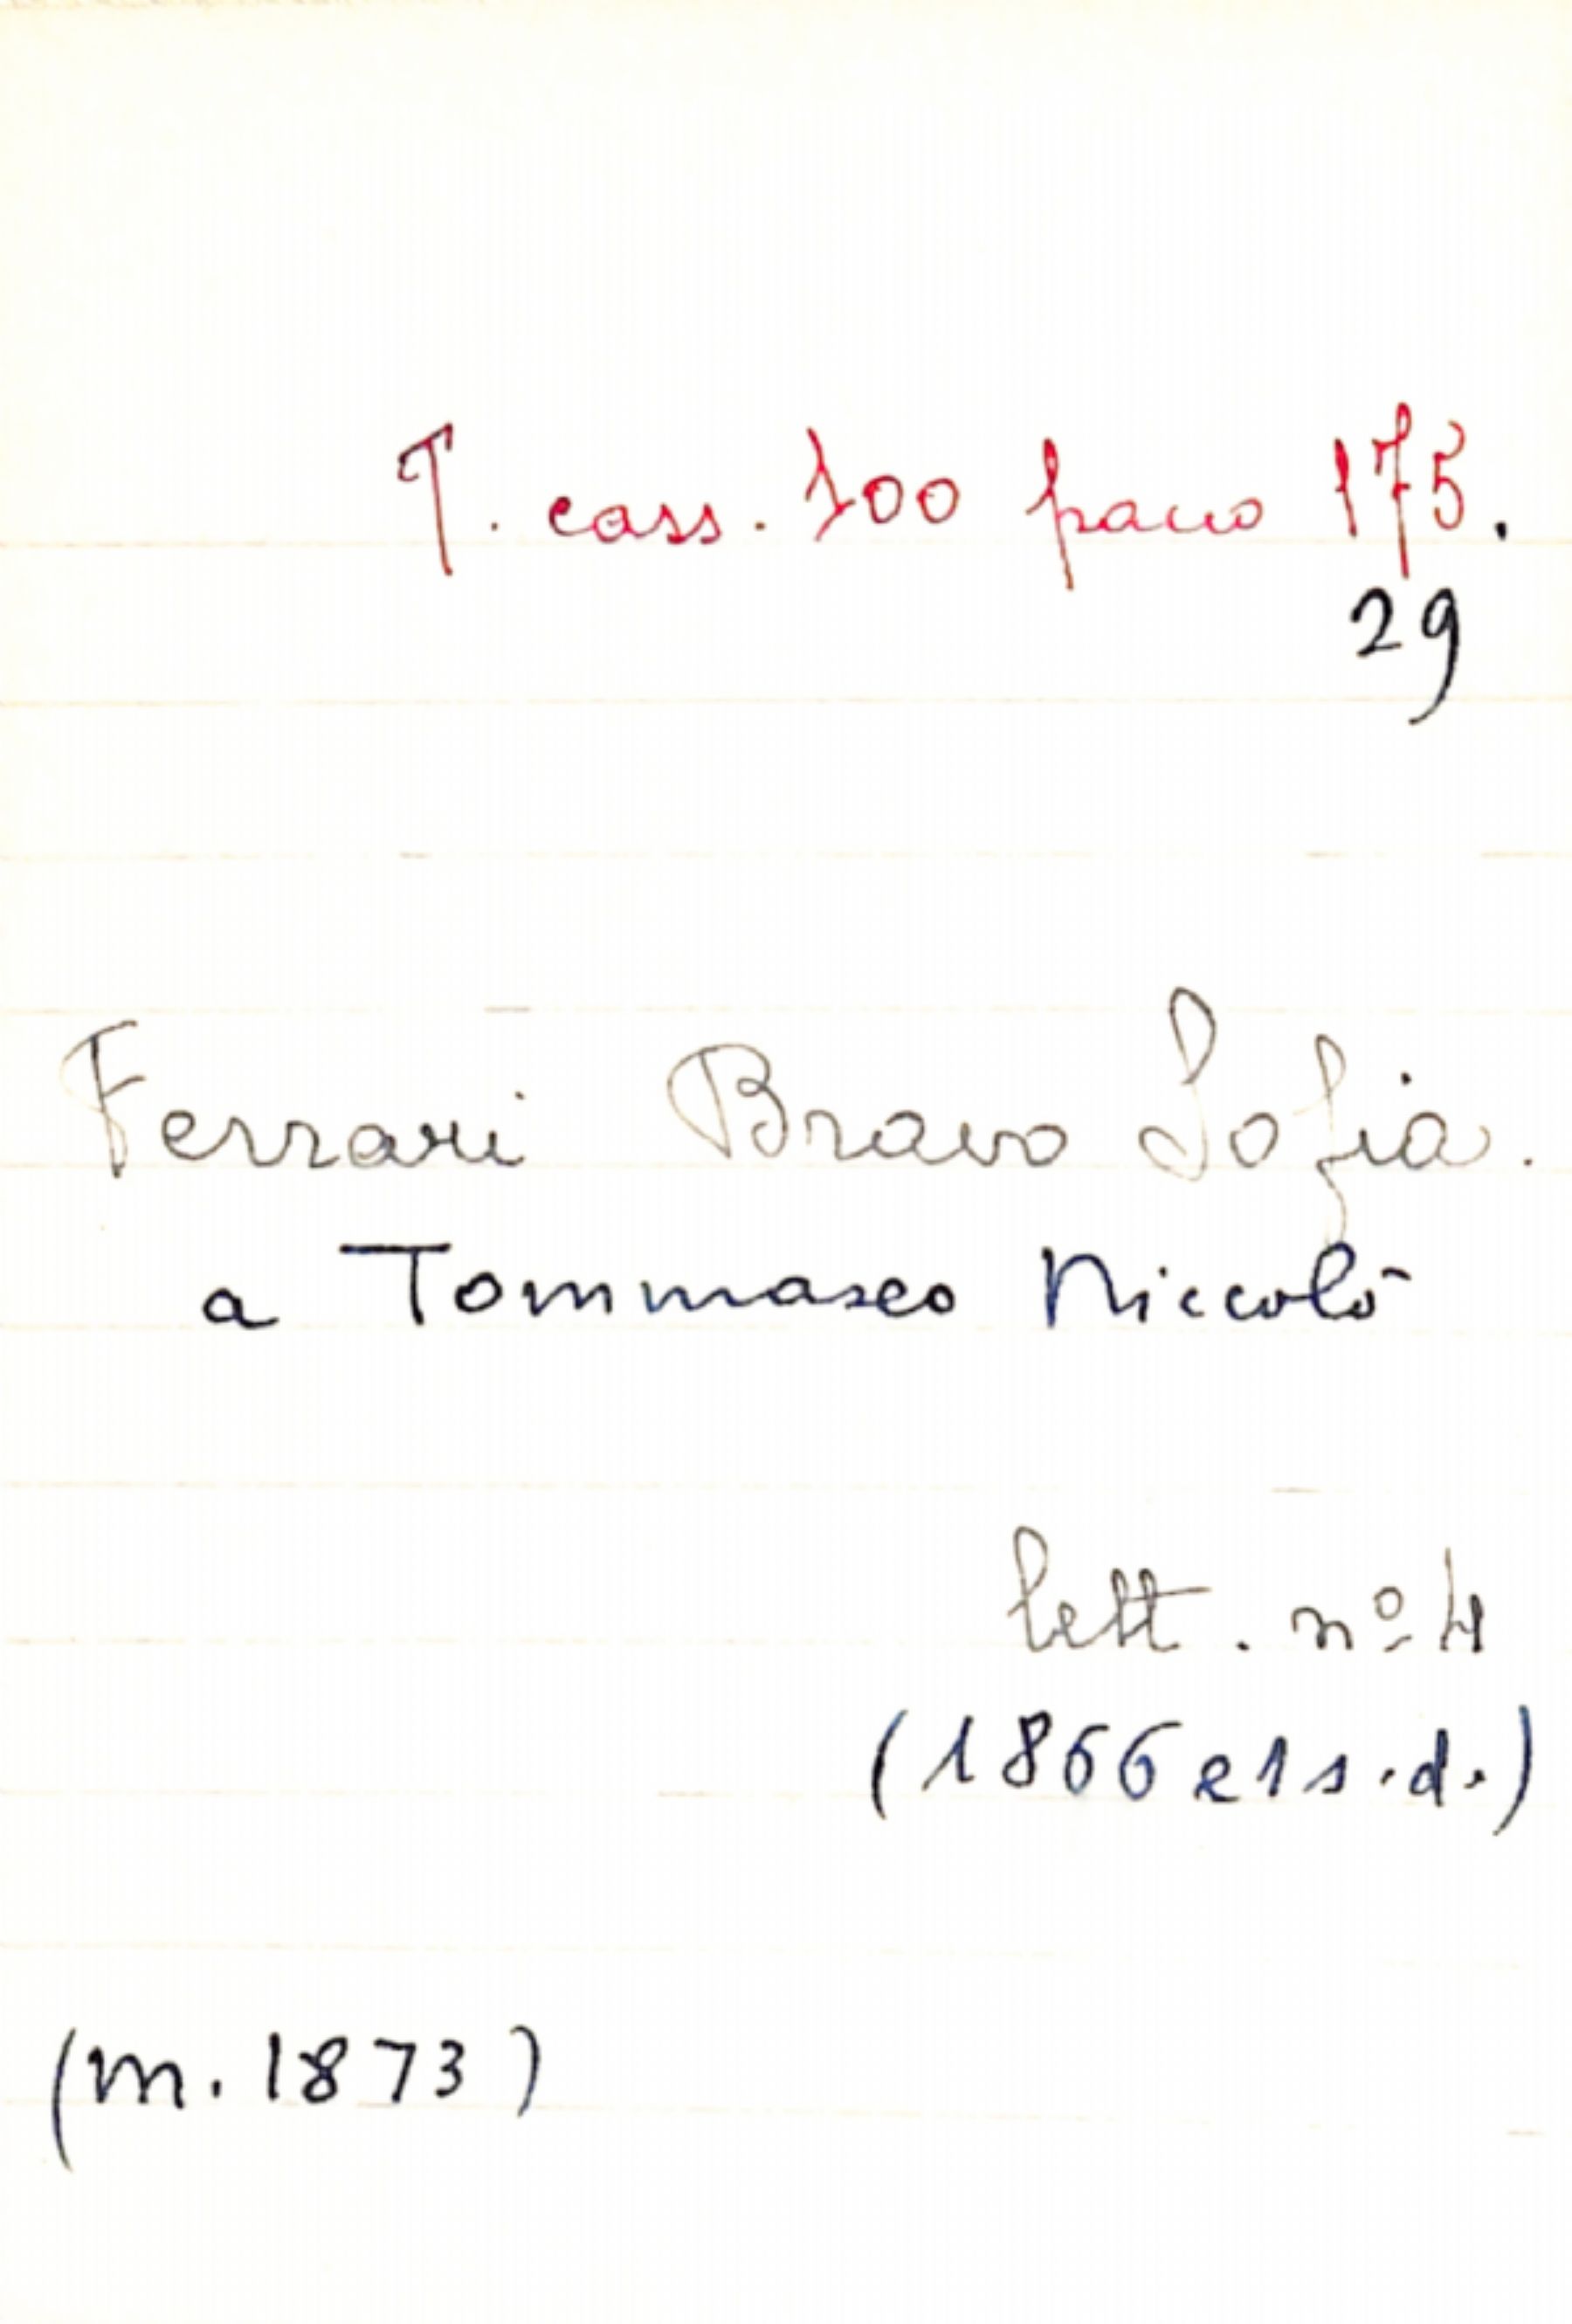 T. cass. 100 pacco 175.
29
Ferrari Bravo Sofia.
a Tommaseo Niccolò
lett. nº 4
(1866 e 1 s.d.)
(m. 1873)